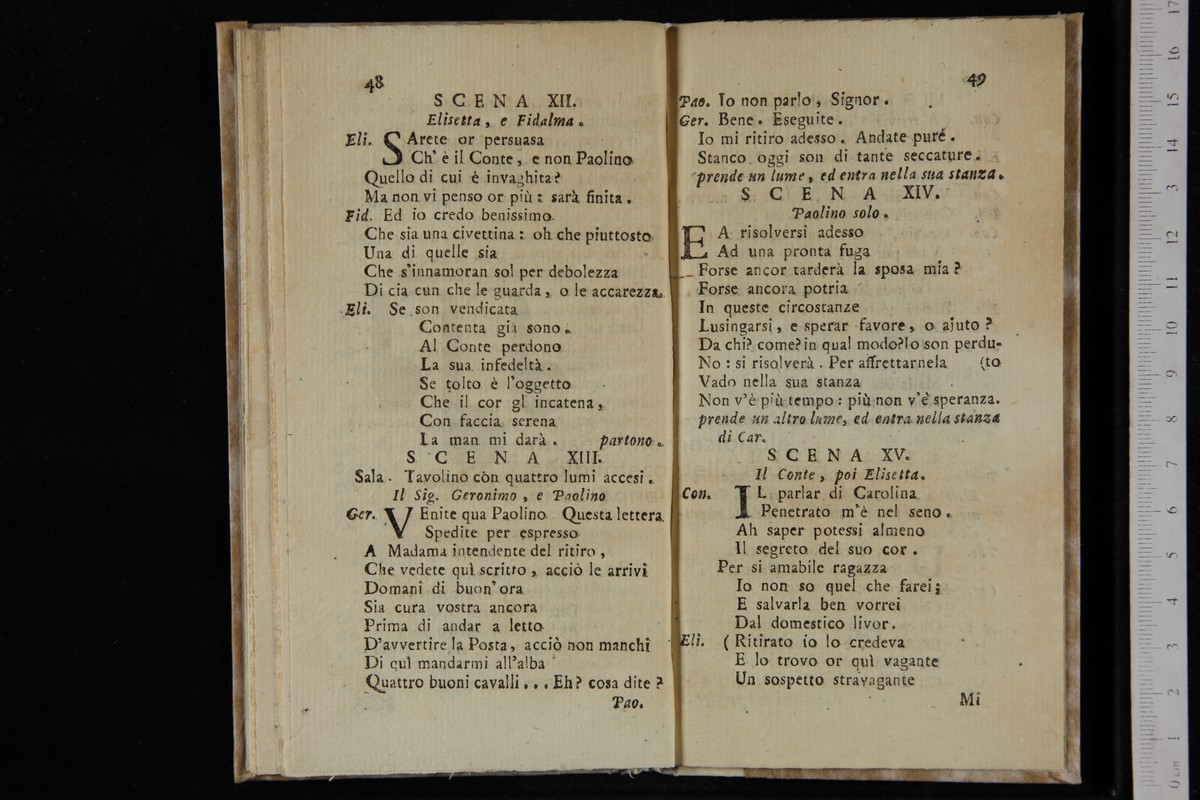 48
SCENA XII.
Elisetta, e Fidalma.
Eli. SArete or persuasa
Ch' è il Conte, e non Paolino
Quello di cui è invaghita?
Ma non vi penso or più: sarà finita.
Fid. Ed io credo benissimo
Che sia una civettina: oh che piuttosto
Una di quelle sia
Che s'innamoran sol per debolezza
Di cia cun che le guarda, o le accarezza.
Eli. Se son vendicata
Contenta già sono.
Al Conte perdono
La sua infedeltà.
Se tolto è l'oggetto
Che il cor gl incatena,
Con faccia serena
La man mi darà. partono.
SCENA XIII.
Sala. Tavolino còn quattro lumi accesi.
Il Sig. Geronimo, e Paolino
Ger. VEnite qua Paolino Questa lettera
Spedite per espresso
A Madama intendente del ritiro,
Che vedete quì scritto, acciò le arrivi
Domani di buon'ora
Sia cura vostra ancora
Prima di andar a letto
D'avvertire la Posta, acciò non manchi
Di quì mandarmi all'alba
Quattro buoni cavalli... Eh? cosa dite?
Pao.
49
Pao. Io non parlo, Signor.
Ger. Bene. Eseguite.
Io mi ritiro adesso. Andate puré.
Stanco oggi son di tante seccature.
prende un lume, ed entra nella sua stanza.
SCENA XIV.
Paolino solo.
EA risolversi adesso
Ad una pronta fuga
Forse ancor tarderà la sposa mia?
Forse ancora potria
In queste circostanze
Lusingarsi, e sperar favore, o ajuto?
Da chi? come? in qual modo? Io son perdu-
No: si risolverà. Per affrettarnela (to
Vado nella sua stanza
Non v'è più tempo: più non v'è speranza.
prende un altro lume, ed entra nella stanza
di Car.
SCENA XV.
Il Conte, poi Elisetta.
Con. IL parlar di Carolina
Penetrato m'è nel seno.
Ah saper potessi almeno
Il segreto del suo cor.
Per si amabile ragazza
Io non so quel che farei;
E salvarla ben vorrei
Dal domestico livor.
Eli. (Ritirato io lo credeva
E lo trovo or quì vagante
Un sospetto stravagante
Mi
17
16
15
14
13
12
11
10
9
8
7
6
5
4
3
2
1
0 cm